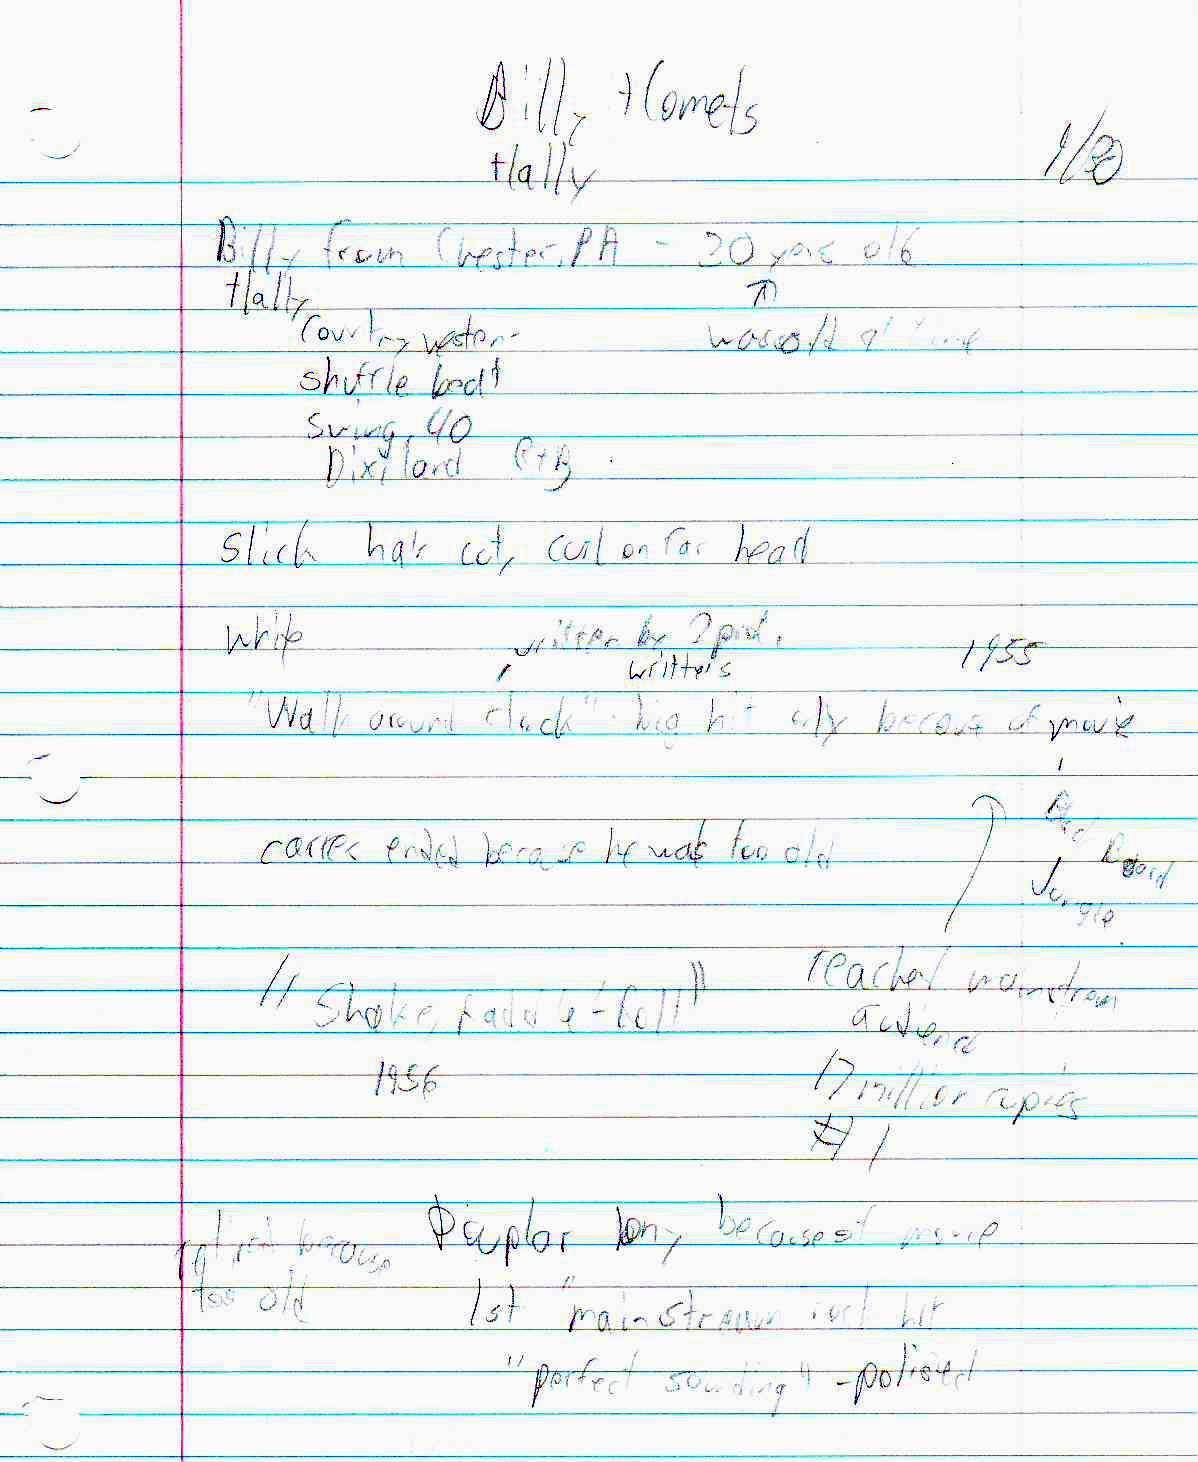 Billy + Comets
Hally
1/30
Billy from Chester, PA - 30 years old
Hally
was old at time
Country western
shuffle beat
swing, 40
Dixiland R+B
slick hair cut, curl on for head
write
written by 2 prof.
writters
1955
"Walk around clock" - big hit only because of movie
Board
Jungle
carrer ended because he was too old
"Shake, rattle + Roll"
1956
reached mainstream
audience
17 million copies
#1
retired because
too old
only because of movie
1st "mainstream hit
"perfect sounding" - polised